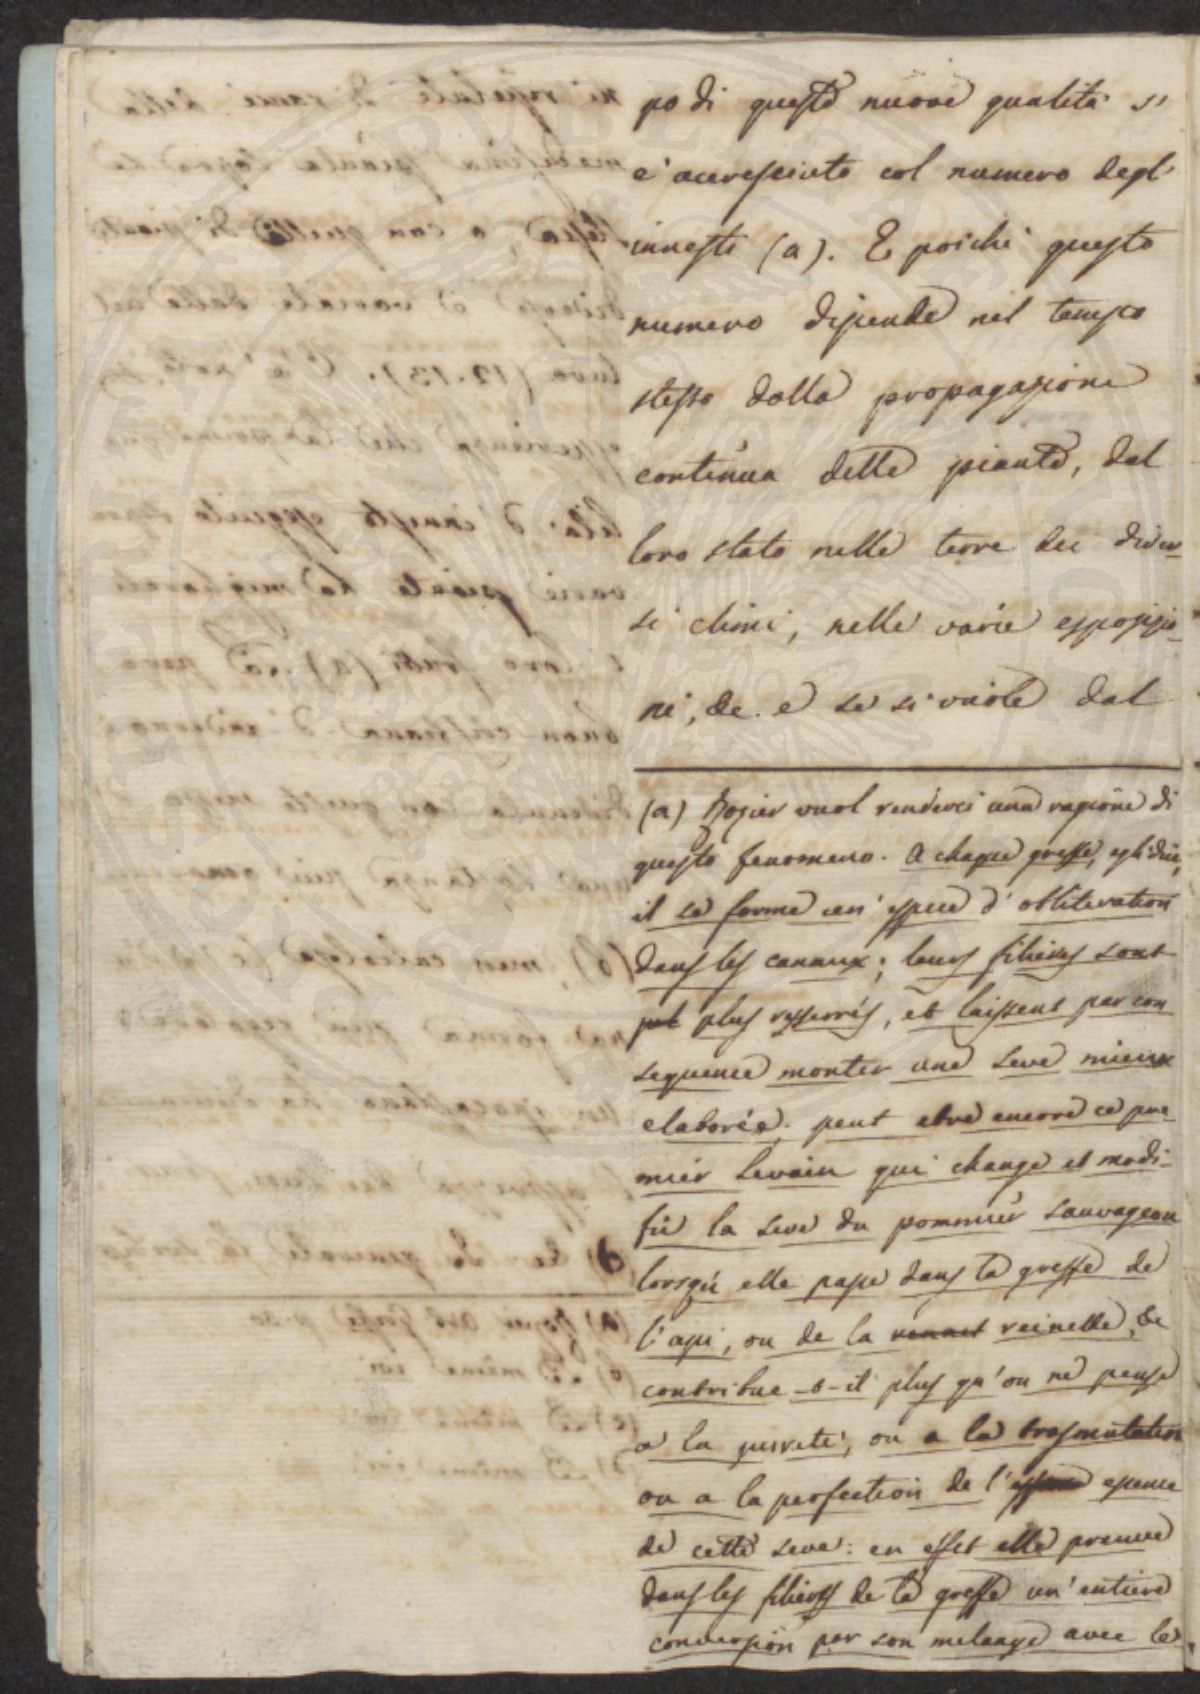 po di queste nuove qualità si
e' accresciuto col numero degl'
innesti (a). E poichè questo
numero dipende nel tempo
stesso dalla propagazione
continua delle piante, dal
loro stato nelle terre dei diver-
si climi, nelle varie esposizio-
ni, &c. e se si vuole dal
(a) Rozier vuol renderci una ragione di
questo fenomeno. A chaque greffe, egli dice,
il se forme un' espece d' obliteration
dans les canaux; leurs filieres sont
plus resserrés, et laissent par con
sequence monter une seve mieux
elaborée. peut etre encore ce pre
mier levain qui change et modi-
fie la seve du pommier sauvageon
lorsqu' elle passe dans la greffe de
l'api, ou de la reinette, &c
contribue-t-il plus qu'on ne pense
a la pureté, ou a la trasmutation
ou a la perfection de l' essence
de cette seve: en effet elle prouve
dans les filieres de la greffe un' entiere
conversion par son melange avec le